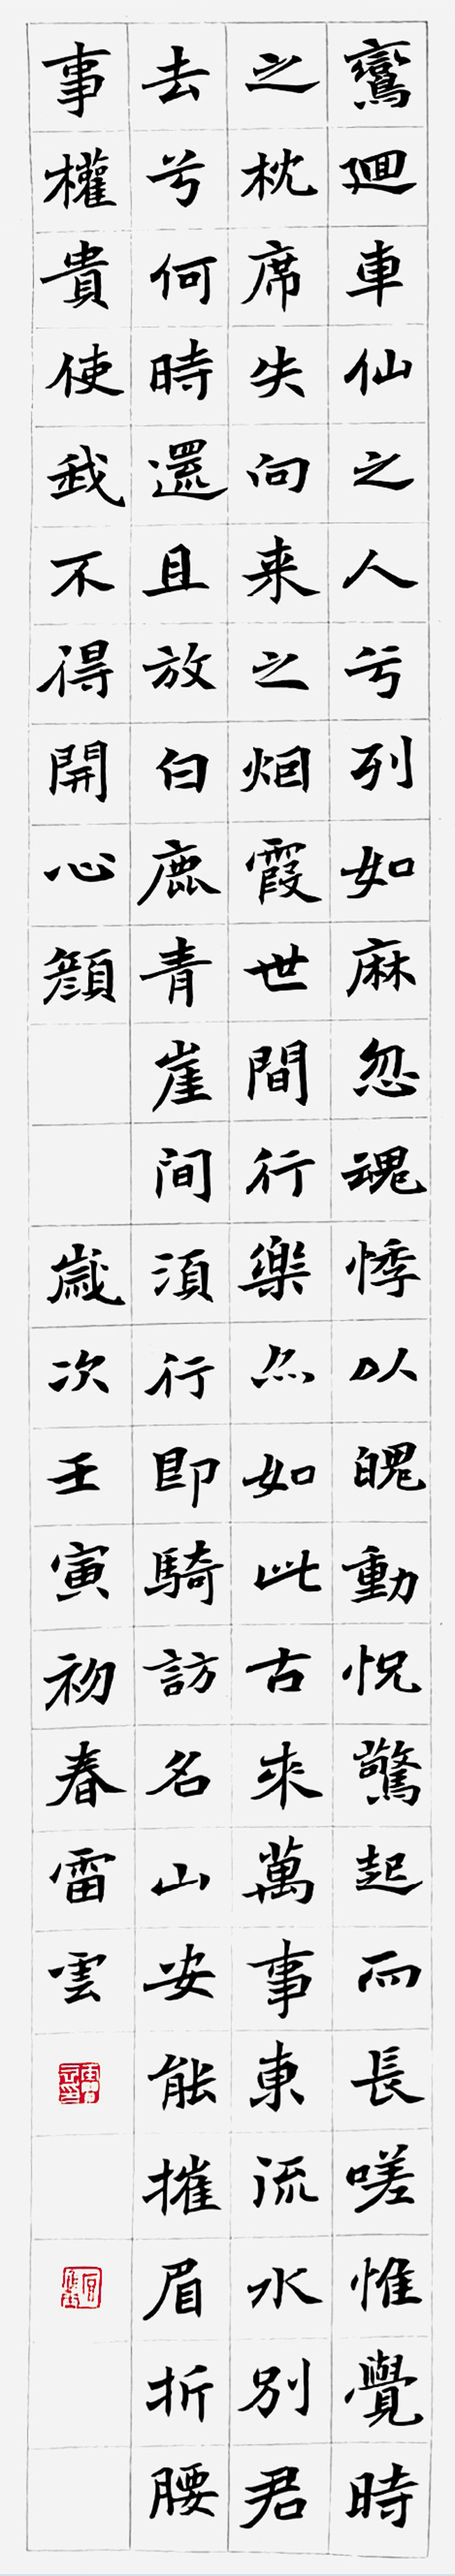 鸞迴車仙之人兮列如麻忽魂悸以魄動怳驚起而長嗟惟覺時
之枕席失向来之烟霞世間行樂亦如此古來萬事東流水别君
去兮何時還且放白鹿青崖间須行即騎訪名山安能摧眉折腰
事權貴使我不得開心顔
歲次壬寅初春雷雲